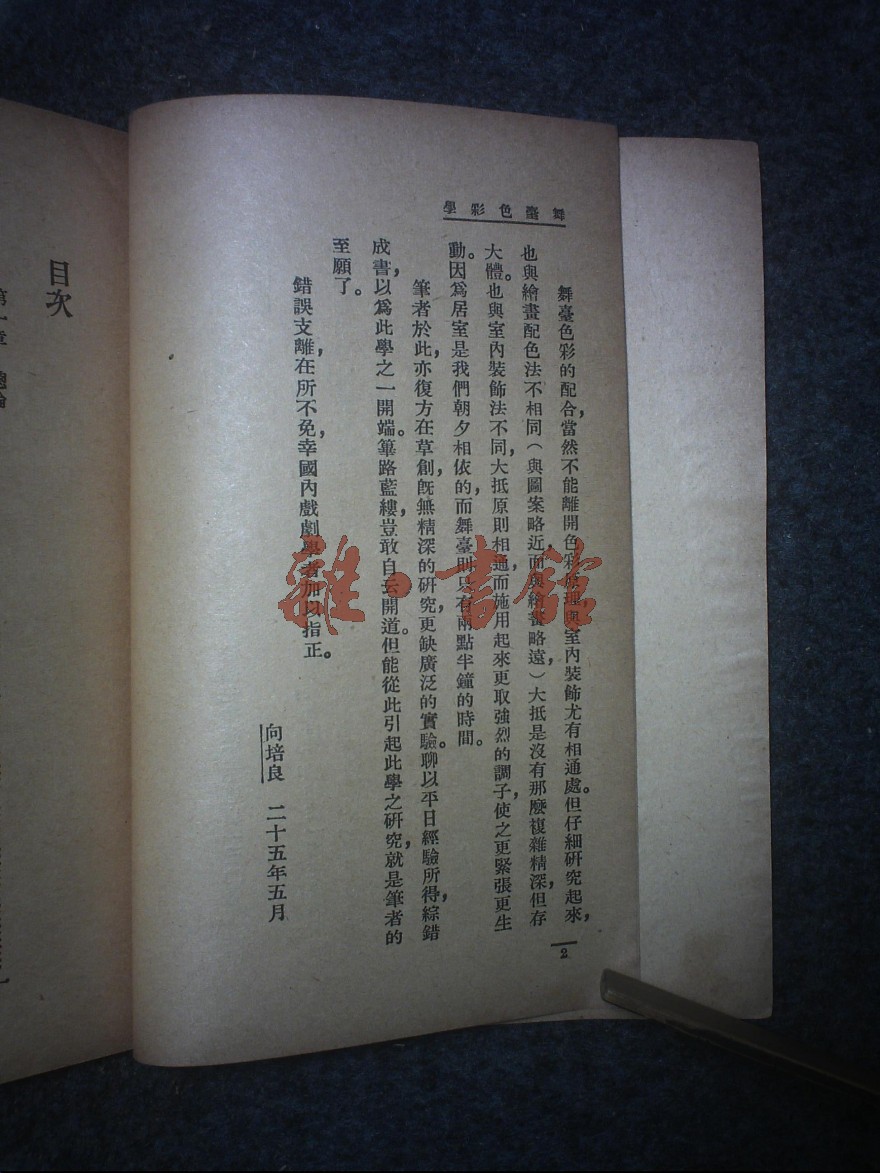 舞臺色彩學
舞臺色彩的配合，當然不能離開色彩原理，與室內裝飾尤有相通處。但仔細硏究起來，
也與繪畫配色法不相同（與圖案略近，而與繪畫略遠）大抵是沒有那麼複雜精深，但存
大體。也與室內裝飾法不同，大抵原則相通，而施用起來更取強烈的調子，使之更緊張更生
動。因爲居室是我們朝夕相依的，而舞臺則只有兩點半鐘的時間。
筆者於此，亦復方在草創，旣無精深的硏究，更缺廣泛的實驗。聊以平日經驗所得，綜錯
成書，以爲此學之一開端。篳路藍縷，豈敢自云開道。但能從此引起此學之硏究，就是筆者的
至願了。
錯誤支離，在所不免，幸國內戲劇學者加以指正。
向培良 二十五年五月
2
目次
第一章 總論
雜·書館